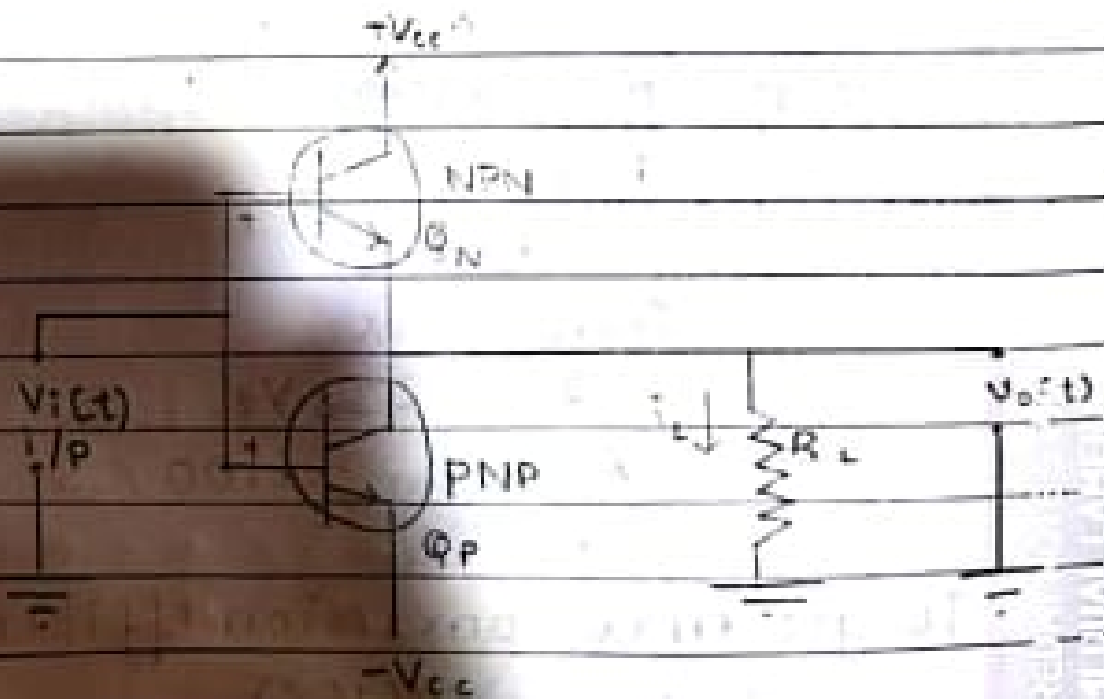 +Vcc
NPN
-
QN
Vi(t)
i/p
+
PNP
QP
iL
RL
Vo(t)
-Vcc